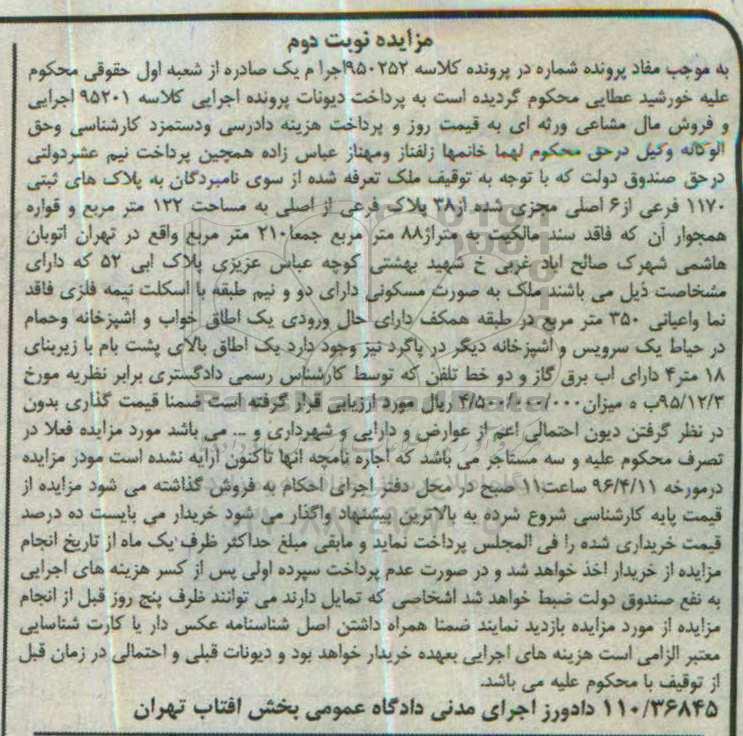 مزایده نوبت دوم
به موجب مفاد پرونده شماره در پرونده کلاسه ۹۵۰۲۵۲اجرا م یک صادره از شعبه اول حقوقی محکوم
علیه خورشید عطایی محکوم گردیده است به پرداخت دیونات پرونده اجرایی کلاسه ۹۵۲۰۱ اجرایی
و فروش مال مشاعی ورثه ای به قیمت روز و پرداخت هزینه دادرسی ودستمزد کارشناسی وحق
الوکاله وکیل درحق محکوم لهما خانمها زلفناز ومهناز عباس زاده همچین پرداخت نیم عشردولتی
درحق صندوق دولت که با توجه به توقیف ملک تعرفه شده از سوی نامبردگان به پلاک های ثبتی
۱۱۷۰ فرعی از۶ اصلی مجزی شده از۳۸ پلاک فرعی از اصلی به مساحت ۱۲۲ متر مربع و قواره
همجوار آن که فاقد سند مالکیت به متراژ۸۸ متر مربع جمعا۲۱۰ متر مربع واقع در تهران اتوبان
هاشمی شهرک صالح اباد غربی خ شهید بهشتی کوچه عباس عزیزی پلاک ابی ۵۲ که دارای
مشخاصت ذیل می باشند ملک به صورت مسکونی دارای دو و نیم طبقه با اسکلت نیمه فلزی فاقد
نما واعیانی ۳۵۰ متر مربع در طبقه همکف دارای حال ورودی یک اطاق خواب و اشپزخانه وحمام
در حیاط یک سرویس و اشپزخانه دیگر در پاگرد نیز وجود دارد یک اطاق بالای پشت بام با زیربنای
۱۸ متر۴ دارای اب برق گاز و دو خط تلفن که توسط کارشناس رسمی دادگستری برابر نظریه مورخ
۹۵/۱۲/۳ب ه میزان۴/۵۰۰/۰۰۰/۰۰۰ ریال مورد ارزیابی قرار گرفته است ضمنا قیمت گذاری بدون
در نظر گرفتن دیون احتمالی اعم از عوارض و دارایی و شهرداری و ... می باشد مورد مزایده فعلا در
تصرف محکوم علیه و سه مستاجر می باشد که اجاره نامچه انها تاکنون ارایه نشده است مودر مزایده
درمورخه ۹۶/۴/۱۱ ساعت۱۱ صبح در محل دفتر اجرای احکام به فروش گذاشته می شود مزایده از
قیمت پایه کارشناسی شروع شرده به بالاترین پیشنهاد واگذار می شود خریدار می بایست ده درصد
قیمت خریداری شده را فی المجلس پرداخت نماید و مابقی مبلغ حداکثر ظرف یک ماه از تاریخ انجام
مزایده از خریدار اخذ خواهد شد و در صورت عدم پرداخت سپرده اولی پس از کسر هزینه های اجرایی
به نفع صندوق دولت ضبط خواهد شد اشخاصی که تمایل دارند می توانند ظرف پنج روز قبل از انجام
مزایده از مورد مزایده بازدید نمایند ضمنا همراه داشتن اصل شناسنامه عکس دار یا کارت شناسایی
معتبر الزامی است هزینه های اجرایی بعهده خریدار خواهد بود و دیونات قبلی و احتمالی در زمان قبل
از توقیف با محکوم علیه می باشد.
۱۱۰/۳۶۸۴۵ دادورز اجرای مدنی دادگاه عمومی بخش افتاب تهران